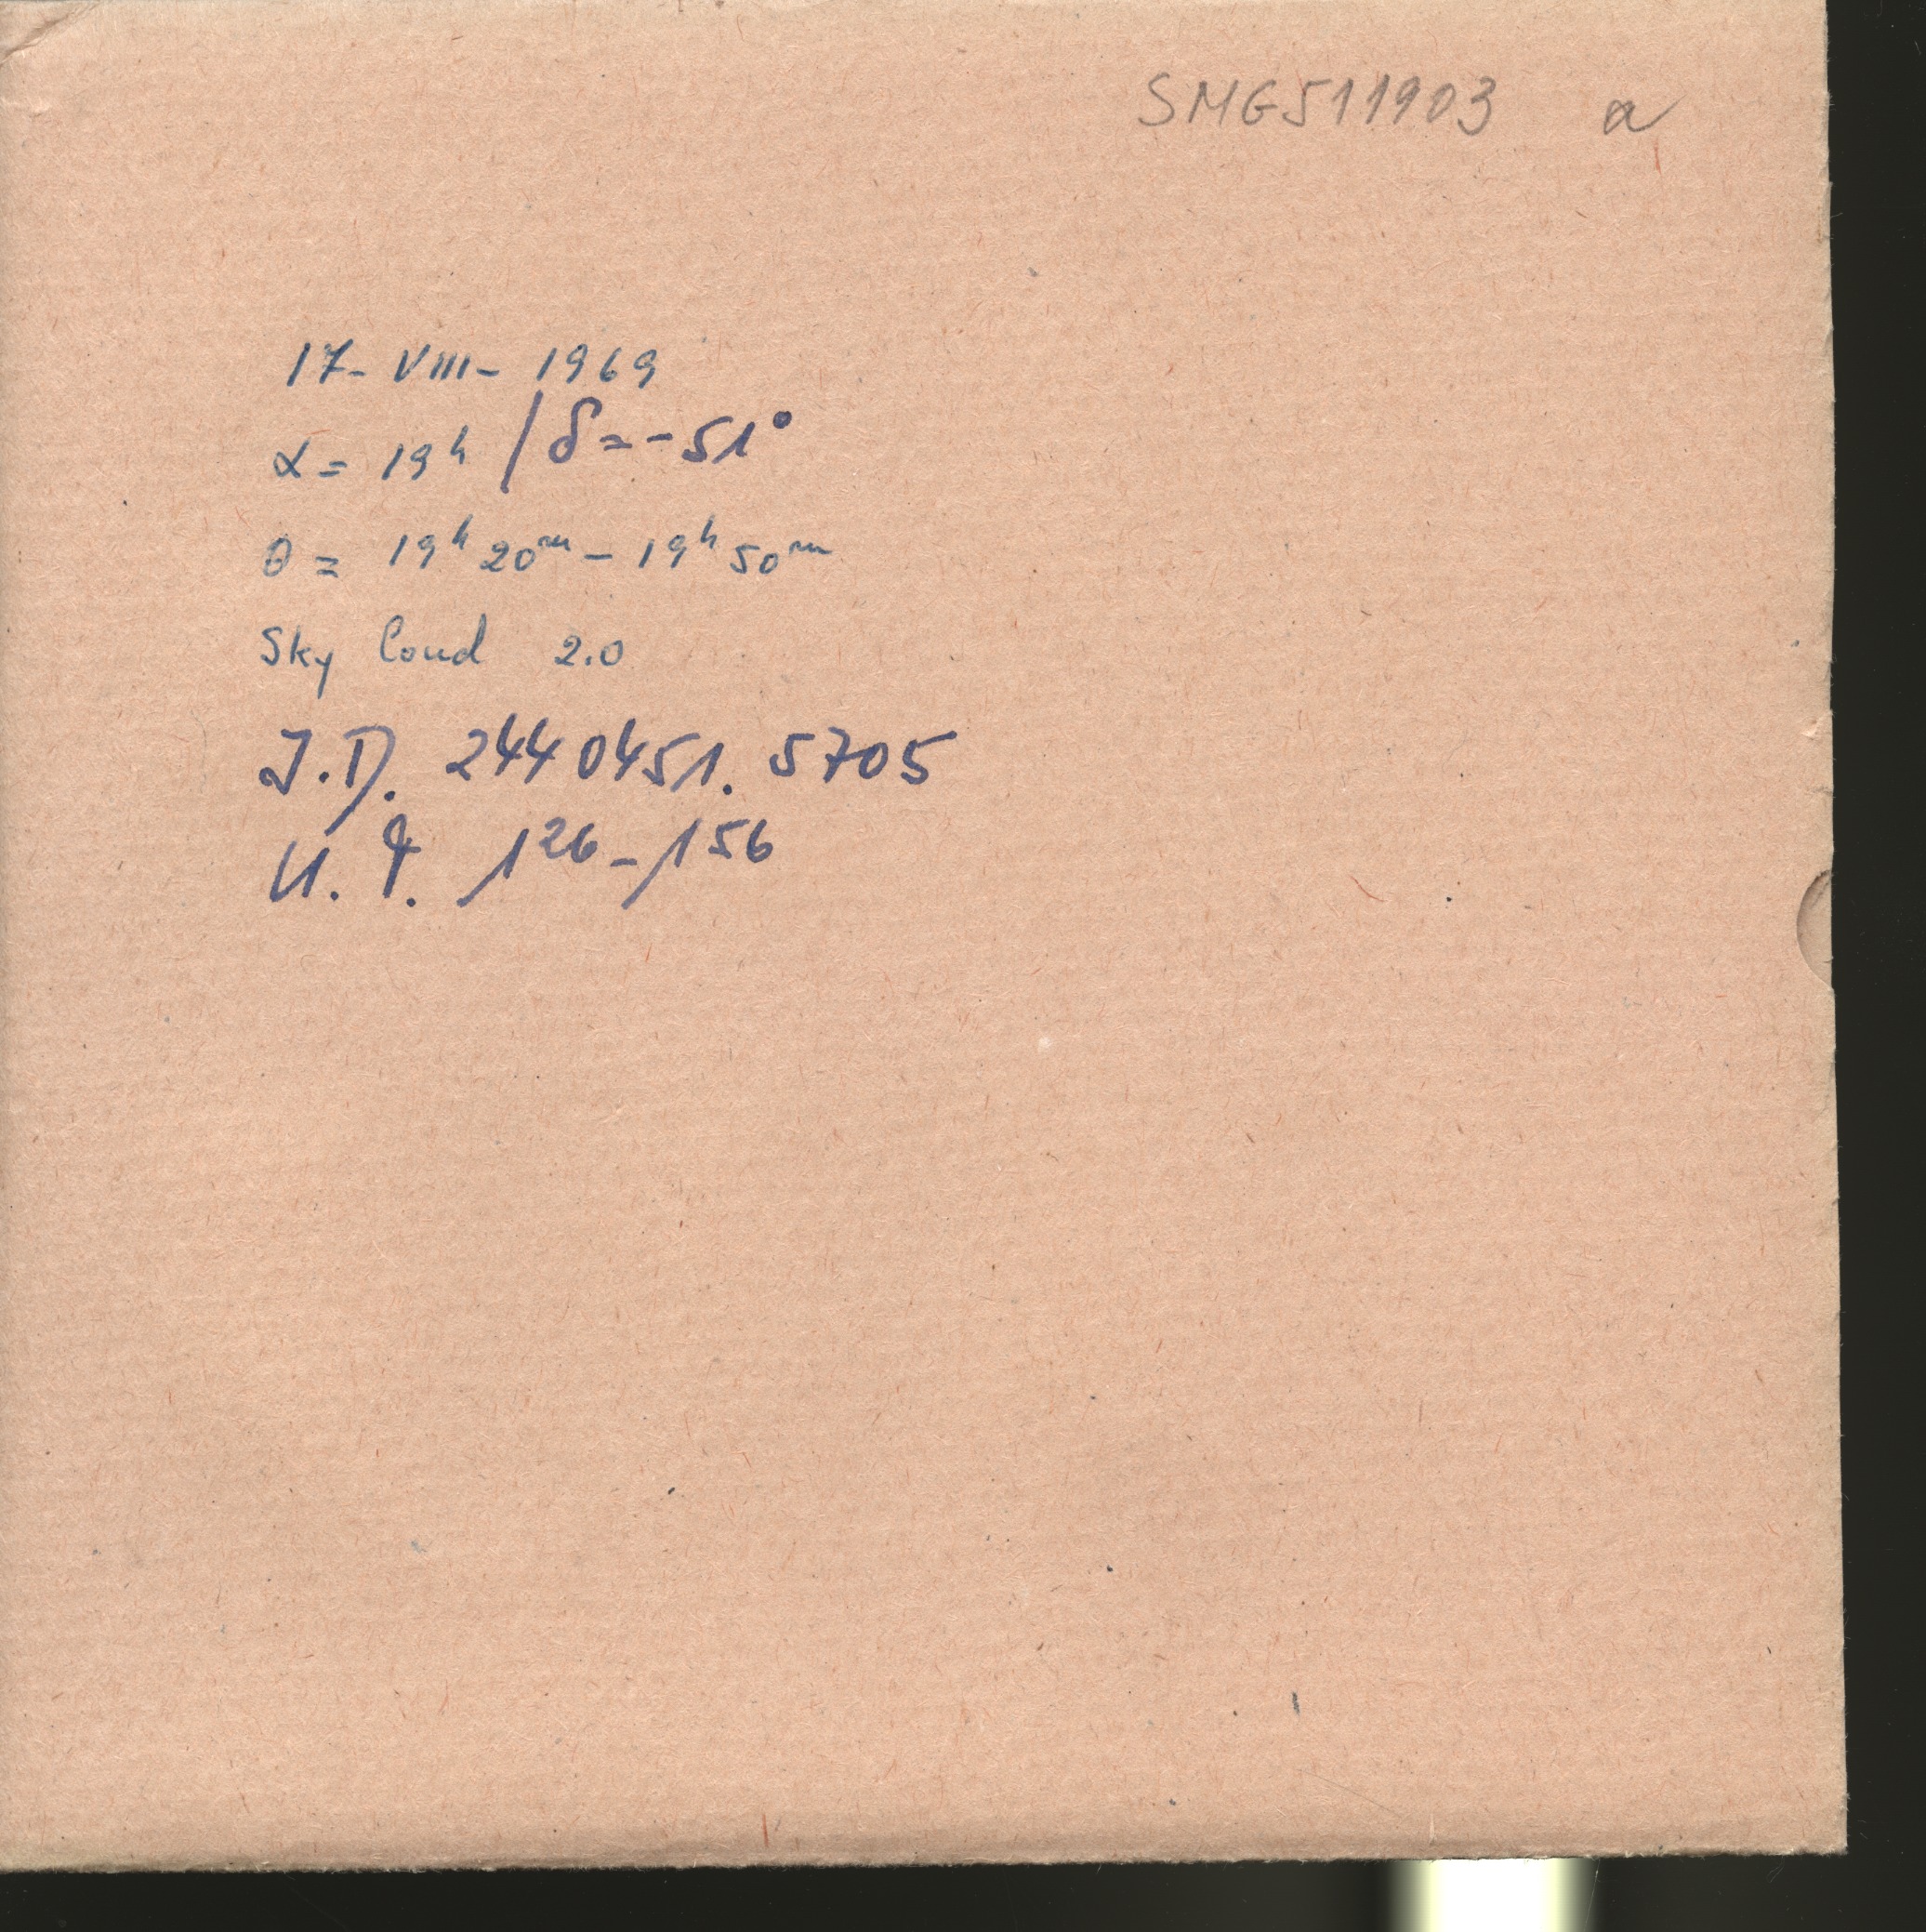 SMG511903 a
17-VIII-1969
α = 19ʰ / δ = -51°
θ = 19ʰ 20ᵐ - 19ʰ 50ᵐ
Sky Cond 2.0
J.D. 2440451.5705
U.T. 1²⁶ - 1⁵⁶